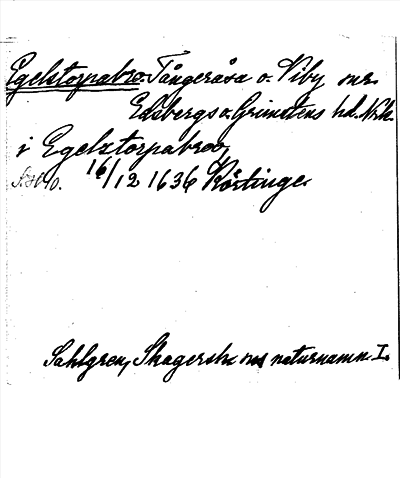 Egelstorpabro. Tångeråsa o. Viby snr.
Edsbergs o. Grimstens hd. Nrk.
i Egelztorpabroo,
16/12 1636 Rörtinge.
Sahlgren, Skagershs ons naturnamn I.